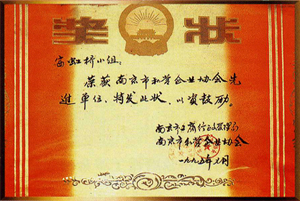 奖状
富虹桥小组：
荣获南京市私营企业协会先
进单位、特发此状、以资鼓励。
南京市工商行政管理局
南京市私营企业协会
一九九五年 月